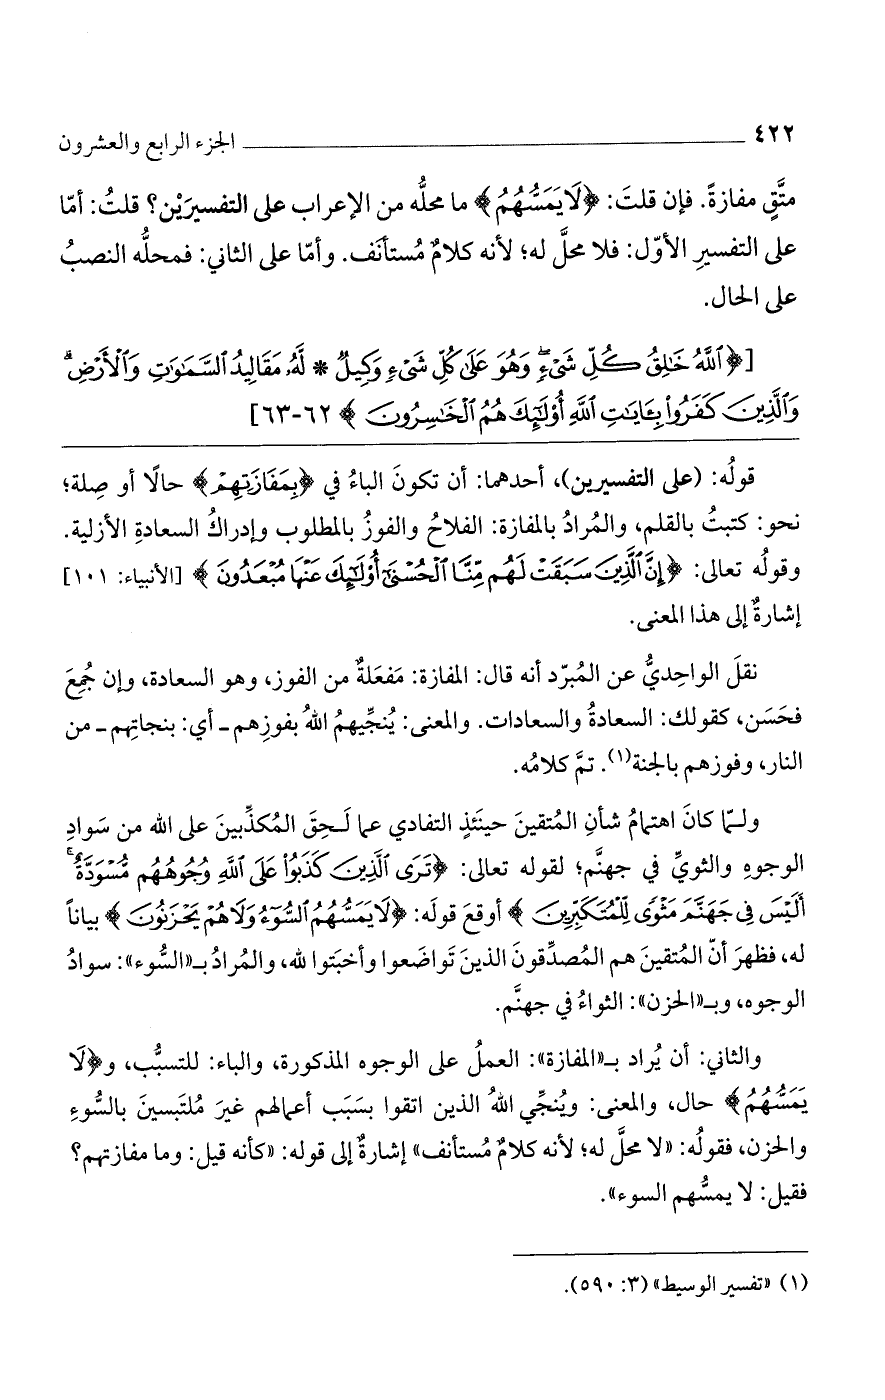 ٤٢٢ الجزء الرابع والعشرون
متَّقٍ مفازةً. فإن قلتَ: ﴿لَا يَمَسُّهُمُ﴾ ما محلُّه من الإعراب على التفسيرَيْن؟ قلتُ: أمّا
على التفسيرِ الأوّل: فلا محلَّ له؛ لأنه كلامٌ مُستأنَف. وأمّا على الثاني: فمحلُّه النصبُ
على الحال.
[﴿ٱللَّهُ خَٰلِقُ كُلِّ شَىْءٍۖ وَهُوَ عَلَىٰ كُلِّ شَىْءٍ وَكِيلٌ * لَّهُۥ مَقَالِيدُ ٱلسَّمَٰوَٰتِ وَٱلْأَرْضِۗ
وَٱلَّذِينَ كَفَرُوا۟ بِـَٔايَٰتِ ٱللَّهِ أُو۟لَٰٓئِكَ هُمُ ٱلْخَٰسِرُونَ﴾ ٦٢-٦٣]
قولُه: (على التفسيرين)، أحدهما: أن تكونَ الباءُ في ﴿بِمَفَازَتِهِمْ﴾ حالًا أو صِلة؛
نحو: كتبتُ بالقلم، والمُرادُ بالمفازة: الفلاحُ والفوزُ بالمطلوب وإدراكُ السعادةِ الأزلية.
وقولُه تعالى: ﴿إِنَّ ٱلَّذِينَ سَبَقَتْ لَهُم مِّنَّا ٱلْحُسْنَىٰٓ أُو۟لَٰٓئِكَ عَنْهَا مُبْعَدُونَ﴾ [الأنبياء: ١٠١]
إشارةٌ إلى هذا المعنى.
نقلَ الواحِديُّ عن المُبرّد أنه قال: المفازة: مَفعَلةٌ من الفوز، وهو السعادة، وإن جُمِعَ
فحَسَن، كقولك: السعادةُ والسعادات. والمعنى: يُنجِّيهمُ اللهُ بفوزِهم ـ أي: بنجاتِهم ـ من
النار، وفوزهم بالجنة(١). تمَّ كلامُه.
ولـمّا كانَ اهتمامُ شأنِ المُتقينَ حينَئذٍ التفادي عما لَـحِقَ المُكذِّبينَ على الله من سَوادِ
الوجوهِ والثويِّ في جهنَّم؛ لقوله تعالى: ﴿تَرَى ٱلَّذِينَ كَذَبُوا۟ عَلَى ٱللَّهِ وُجُوهُهُم مُّسْوَدَّةٌۚ
أَلَيْسَ فِى جَهَنَّمَ مَثْوًى لِّلْمُتَكَبِّرِينَ﴾ أوقعَ قولَه: ﴿لَا يَمَسُّهُمُ ٱلسُّوٓءُ وَلَا هُمْ يَحْزَنُونَ﴾ بياناً
له، فظهرَ أنّ المُتقينَ هم المُصدِّقونَ الذينَ تَواضَعوا وأخبَتوا لله، والمُرادُ بـ«السُّوء»: سوادُ
الوجوه، وبـ«الحزن»: الثواءُ في جهنَّم.
والثاني: أن يُراد بـ«المفازة»: العملُ على الوجوه المذكورة، والباء: للتسبُّب، و﴿لَا
يَمَسُّهُمُ﴾ حال، والمعنى: ويُنجِّي اللهُ الذين اتقوا بسَبَب أعمالهم غيرَ مُلتَبسينَ بالسُّوءِ
والحزن، فقولُه: «لا محلَّ له؛ لأنه كلامٌ مُستأنف» إشارةٌ إلى قوله: «كأنه قيل: وما مفازتهم؟
فقيل: لا يمسُّهم السوء».
(١) «تفسير الوسيط» (٣: ٥٩٠).